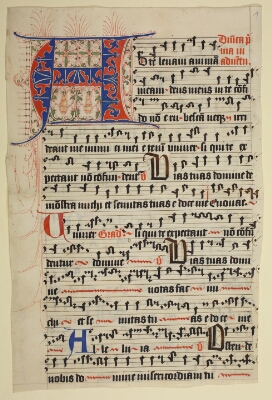 Dñica p̃
ma in
aduētu
D te leuaui animā
meam deus meus in te cōfi
do nō erubescā neqz irri
deant me inimici mei etenī vniuersi qui te ex
pectant nō cōfundent V̓ Vias tuas domine de
mōstra michi et semitas tuas edoce me Euouae
Vniuer Grad. si qui te expectant nō cōfū
dentur domine V̓ Vias tuas domi
ne notas fac mi
chi et se mitas tu as edoce me
Al le lu ia V̓ Osten de
nobis do mine misericordiam tu